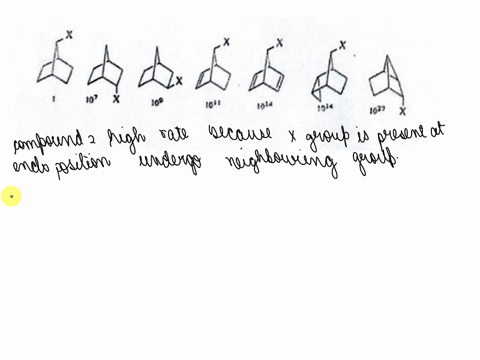 X X X X
X X X
1 10⁷ 10⁹ 10¹¹ 10¹⁴ 10¹⁴ 10²⁷
compound 2 high rate because x group is present at
endo position undergo neighbouring group.